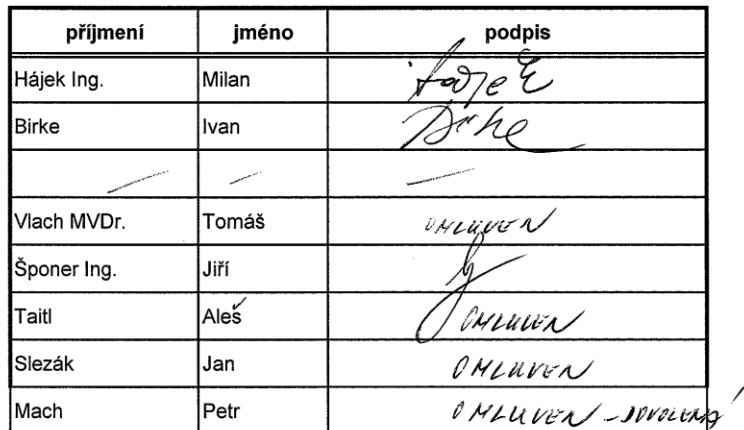 příjmení jméno podpis
Hájek Ing. Milan Hájek
Birke Ivan Birke
Vlach MVDr. Tomáš OMLUVEN
Šponer Ing. Jiří
Taitl Aleš OMLUVEN
Slezák Jan OMLUVEN
Mach Petr OMLUVEN - DOVOLENÁ